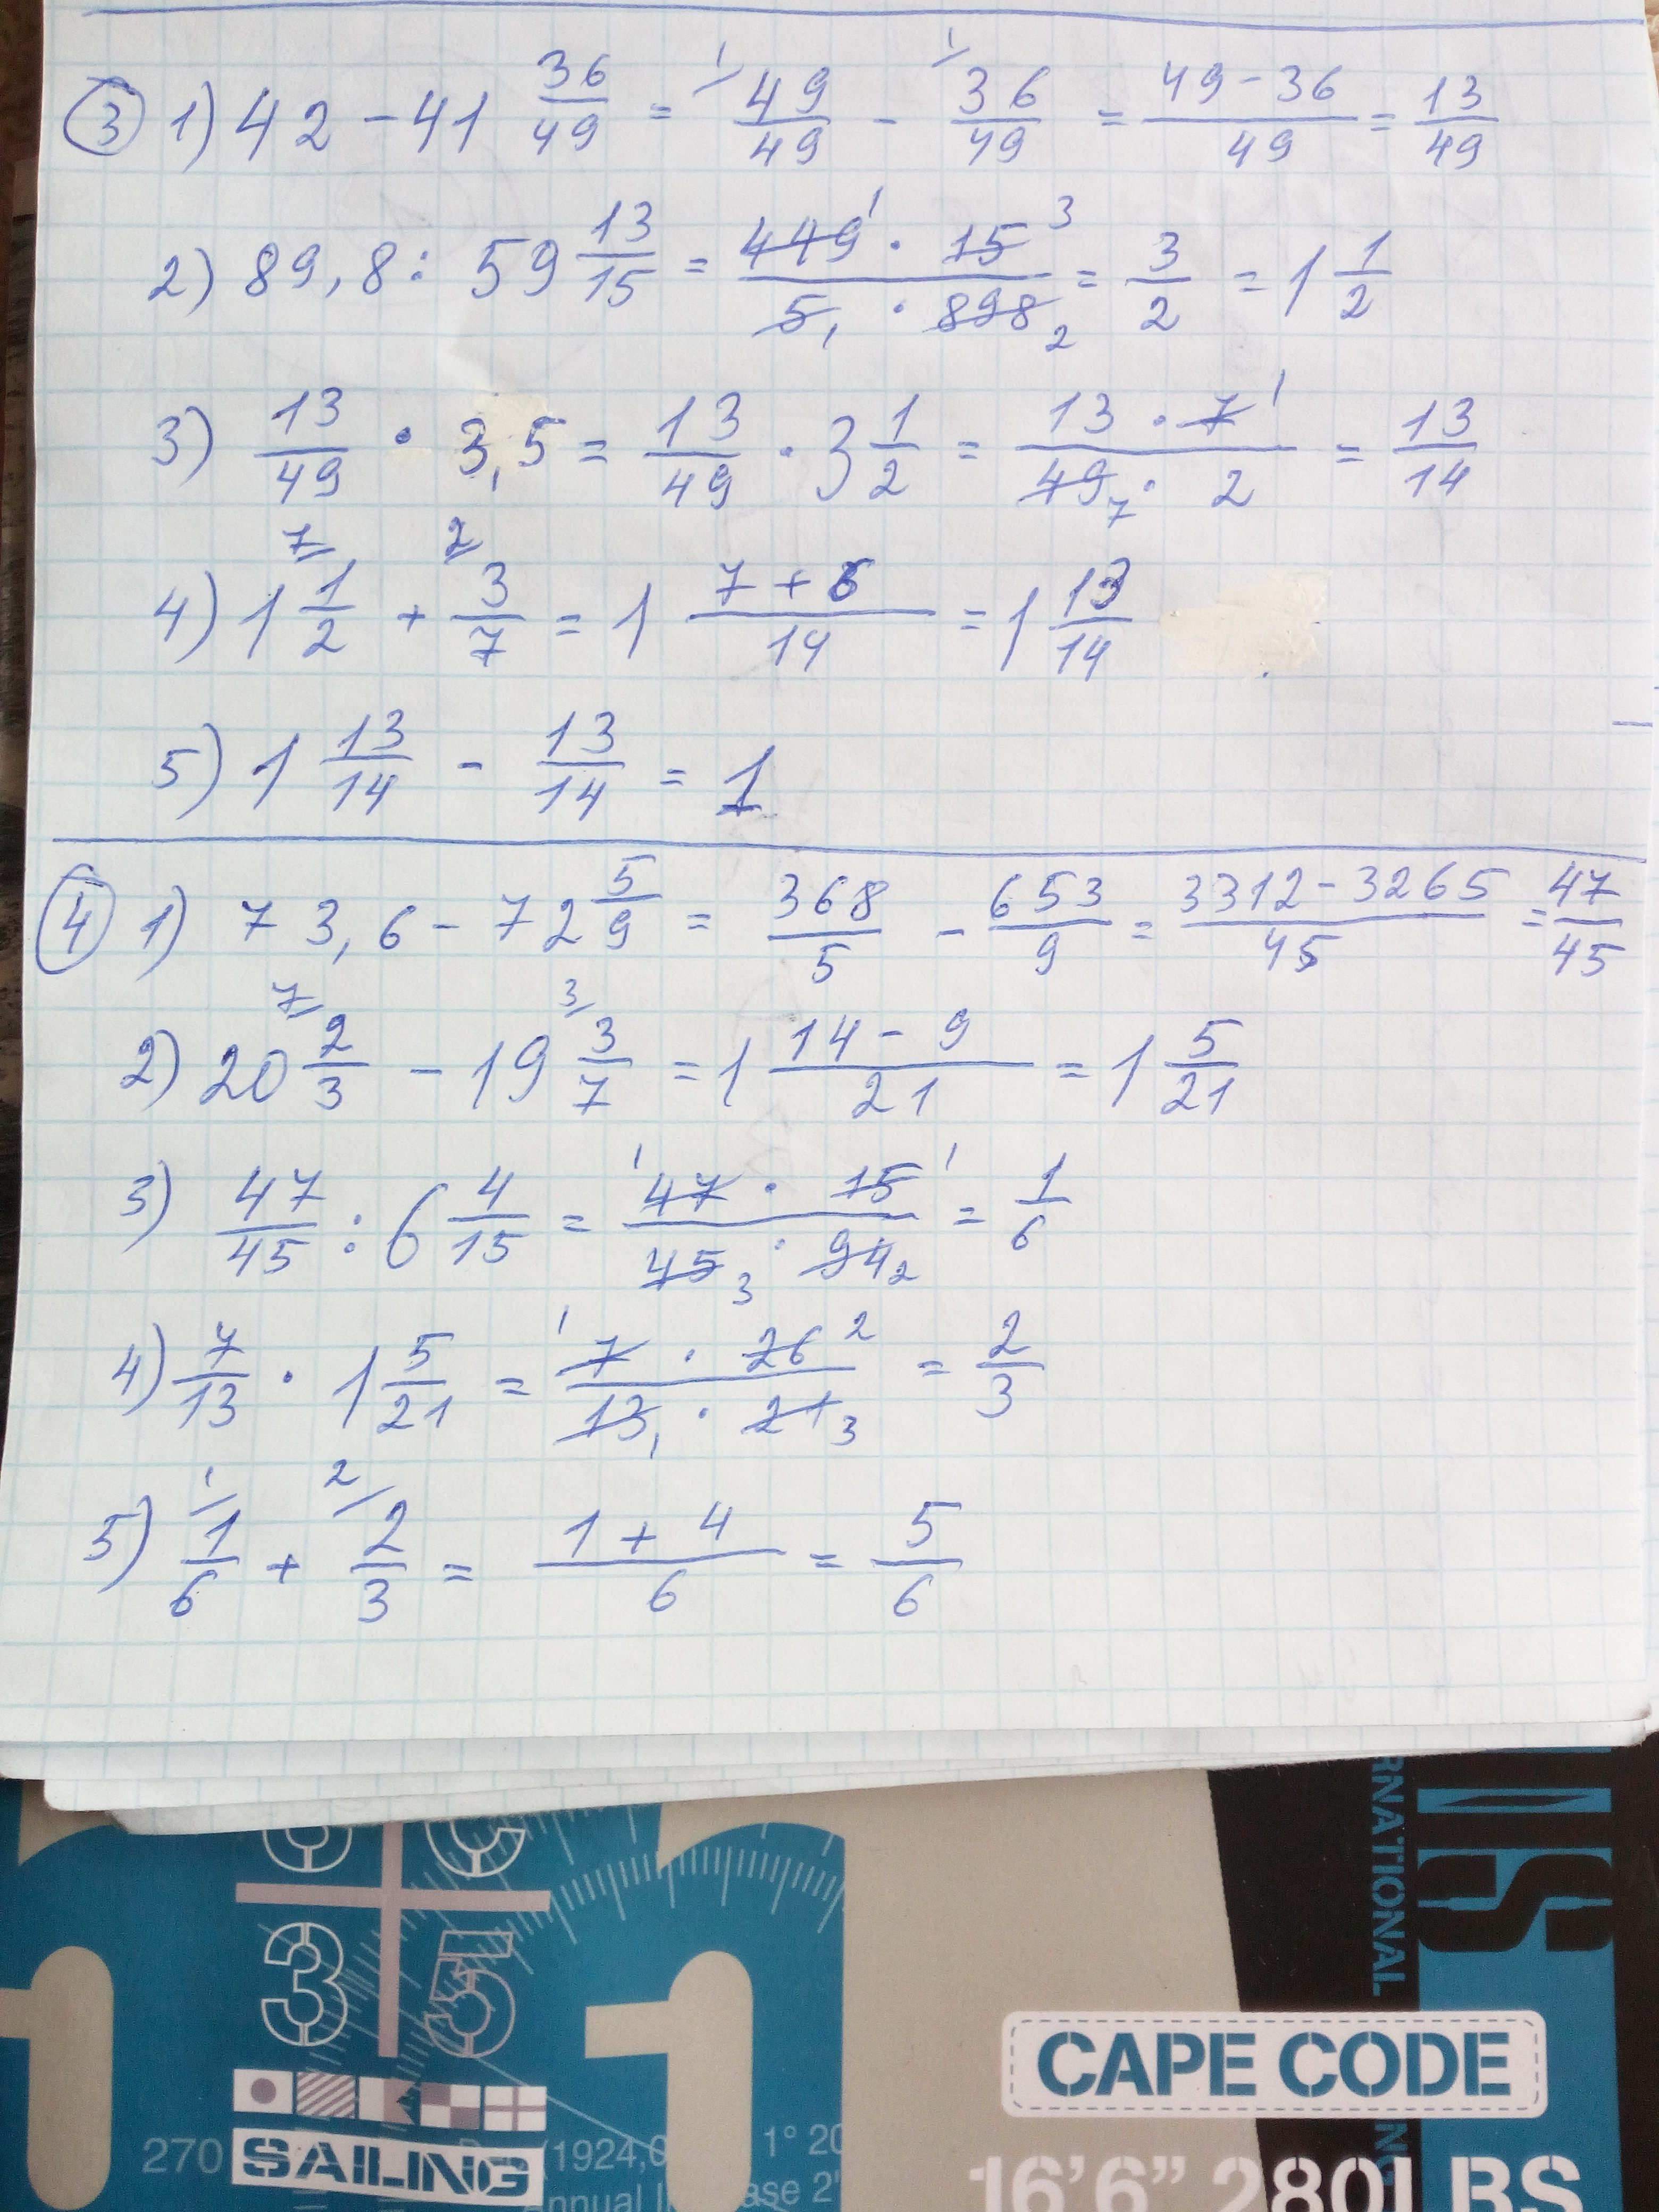 ③ 1) 42 - 41 36/49 = 49/49 - 36/49 = (49 - 36)/49 = 13/49
2) 89,8 : 59 13/15 = (449 · 15)/(5 · 898) = 3/2 = 1 1/2
3) 13/49 · 3,5 = 13/49 · 3 1/2 = (13 · 7)/(49 · 2) = 13/14
4) 1 1/2 + 3/7 = 1 (7 + 6)/14 = 1 13/14
5) 1 13/14 - 13/14 = 1
④ 1) 73,6 - 72 5/9 = 368/5 - 653/9 = (3312 - 3265)/45 = 47/45
2) 20 2/3 - 19 3/7 = 1 (14 - 9)/21 = 1 5/21
3) 47/45 : 6 4/15 = (47 · 15)/(45 · 94) = 1/6
4) 7/13 · 1 5/21 = (7 · 26)/(13 · 21) = 2/3
5) 1/6 + 2/3 = (1 + 4)/6 = 5/6
RNATIONAL
3 5
1
CAPE CODE
270
SAILING
(1924,0
1° 20
Annual
ase 2'
16'6" 280LBS